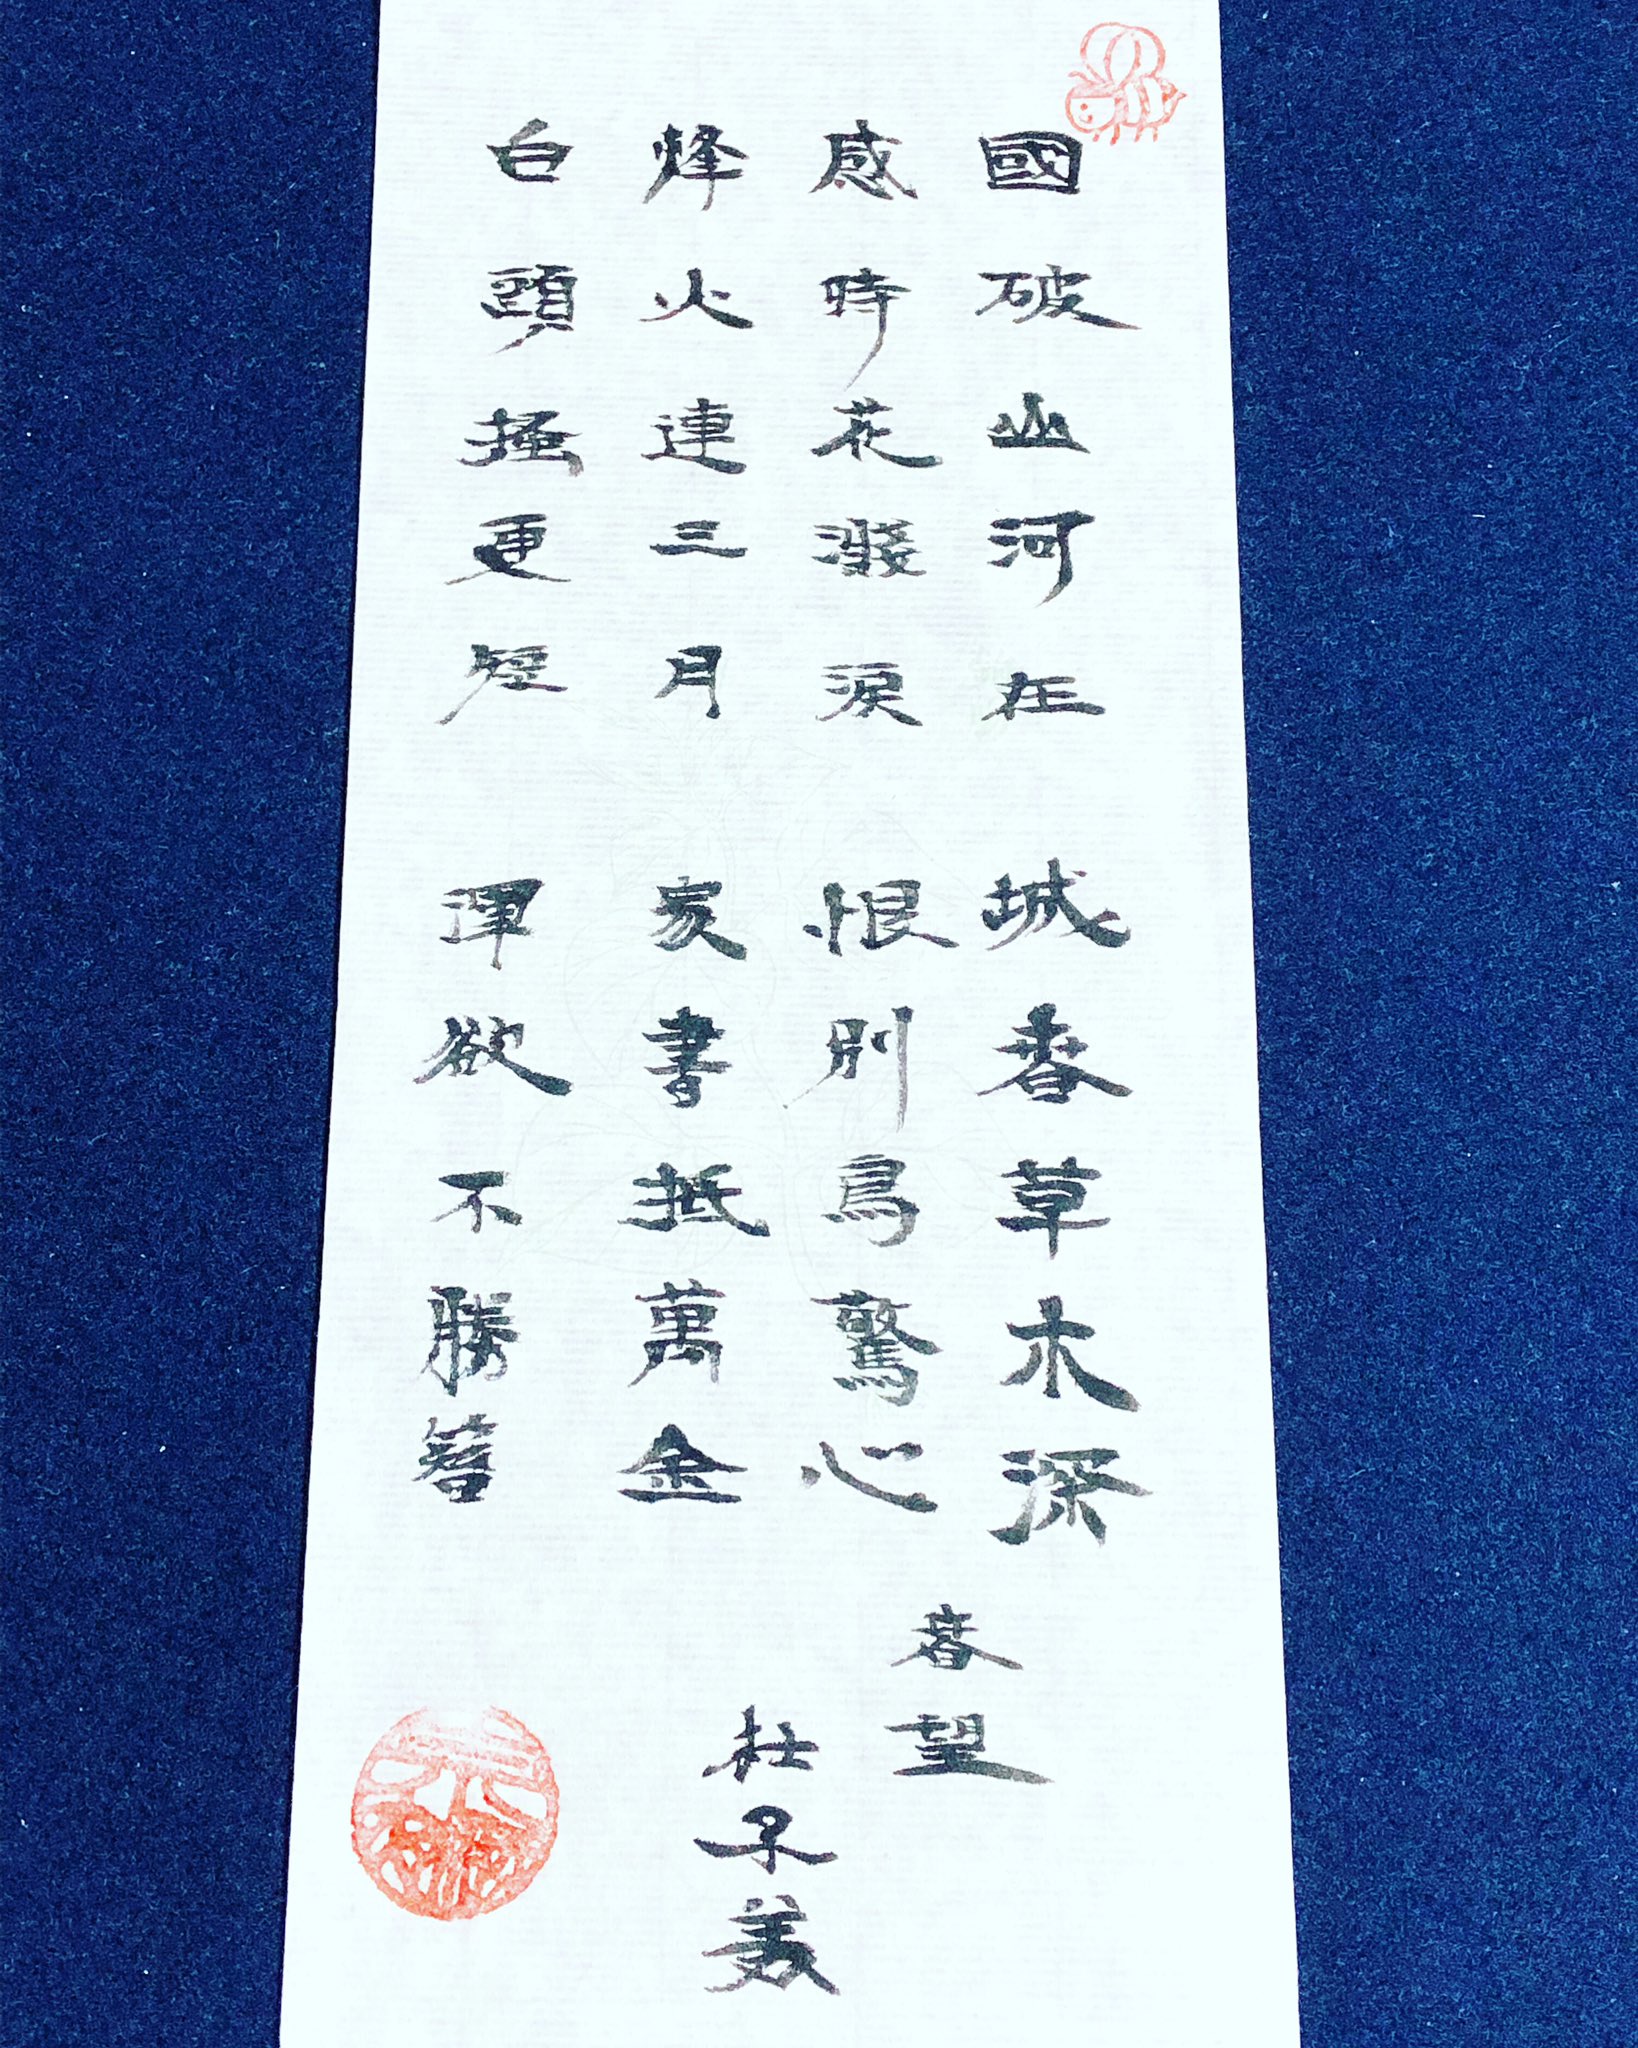 國破山河在 城春草木深
感時花濺淚 恨別鳥驚心
烽火連三月 家書抵萬金
白頭搔更短 渾欲不勝簪
春望
杜子美